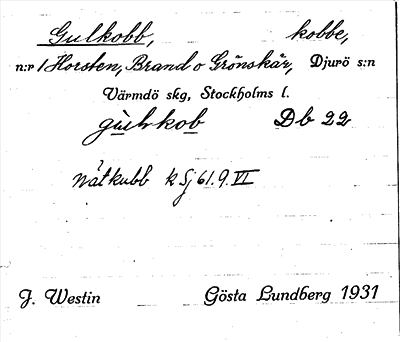 Gulkobb, kobbe,
n:r 1 Horsten, Brand o Grönskär, Djurö s:n
Värmdö skg, Stockholms l.
gùl‿kob Db 22
nåtkubb k Sj 61.9.VI
J. Westin Gösta Lundberg 1931